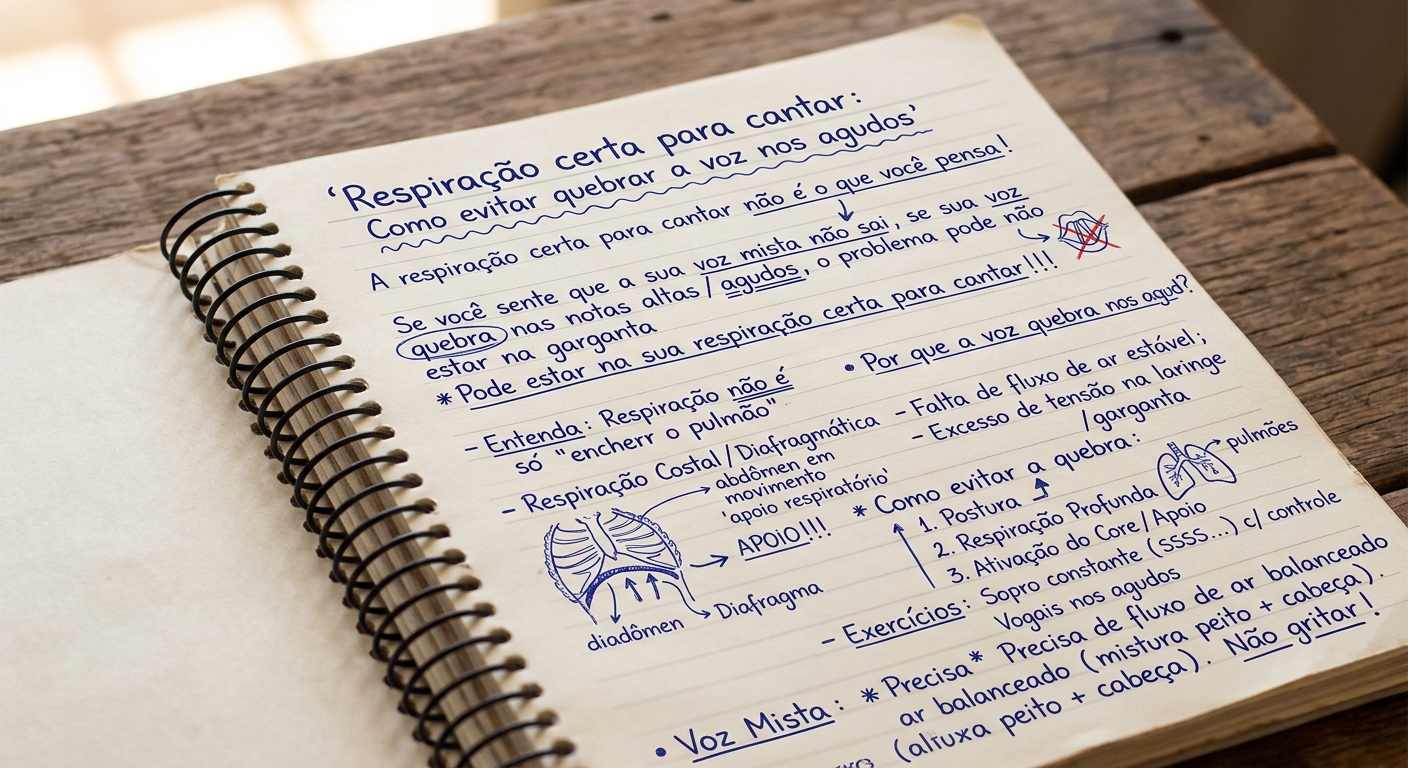 ‘Respiração certa para cantar:
Como evitar quebrar a voz nos agudos’
A respiração certa para cantar não é o que você pensa!
Se você sente que a sua voz mista não sai, se sua voz
quebra nas notas altas/agudos, o problema pode não
estar na garganta
* Pode estar na sua respiração certa para cantar!!!
- Entenda: Respiração não é
só "encherr o pulmão"
- Respiração Costal/Diafragmática
abdômen em
movimento
'apoio respiratório'
APOIO!!!
Diafragma
diadômen
• Por que a voz quebra nos agud?.
- Falta de fluxo de ar estável;
- Excesso de tensão na laringe
/garganta
* Como evitar a quebra:
1. Postura
2. Respiração Profunda
pulmões
3. Ativação do Core/Apoio
- Exercícios: Sopro constante (ssss...) c/ controle
Vogais nos agudos
• Voz Mista: *Precisa* Precisa de fluxo de ar balanceado
ar balanceado (mistura peito + cabeça).
(alruxa peito + cabeça). Não gritar!